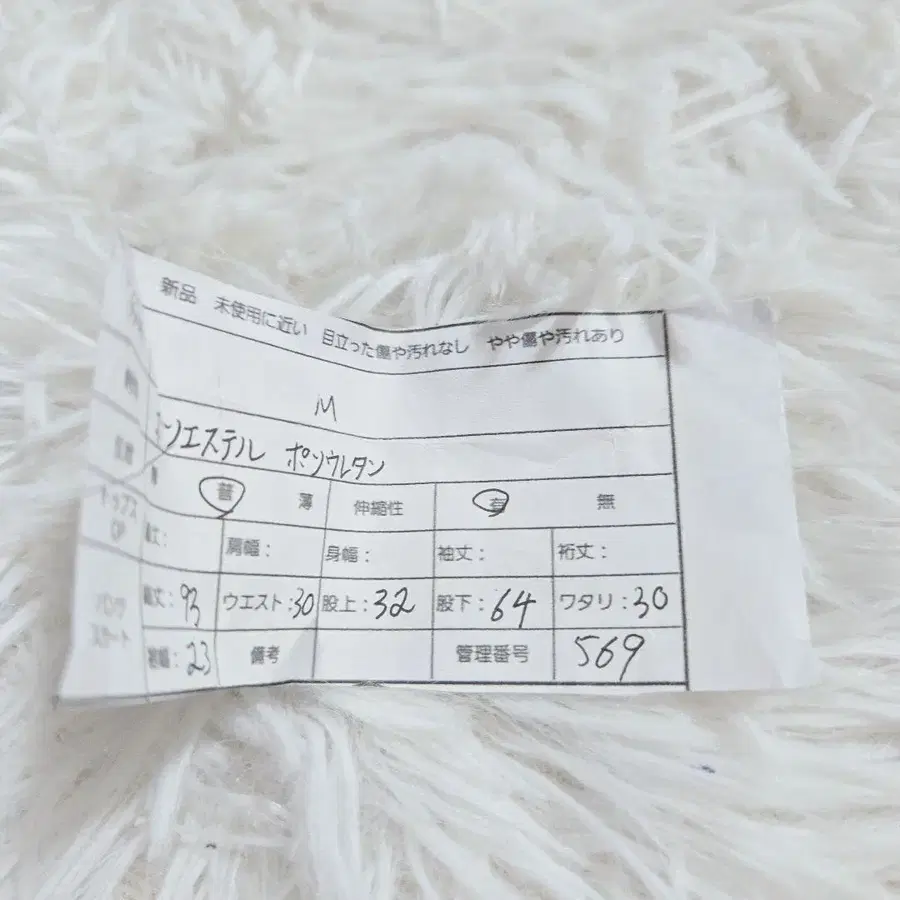 新品 未使用に近い 目立った傷や汚れなし やや傷や汚れあり
M
ポリエステル ポリウレタン
普 薄 伸縮性 有 無
トップス
OP
丈: 肩幅: 身幅: 袖丈: 裄丈:
パンツ
スカート
総丈: 93 ウエスト: 30 股上: 32 股下: 64 ワタリ: 30
裾幅: 23 備考 管理番号 569